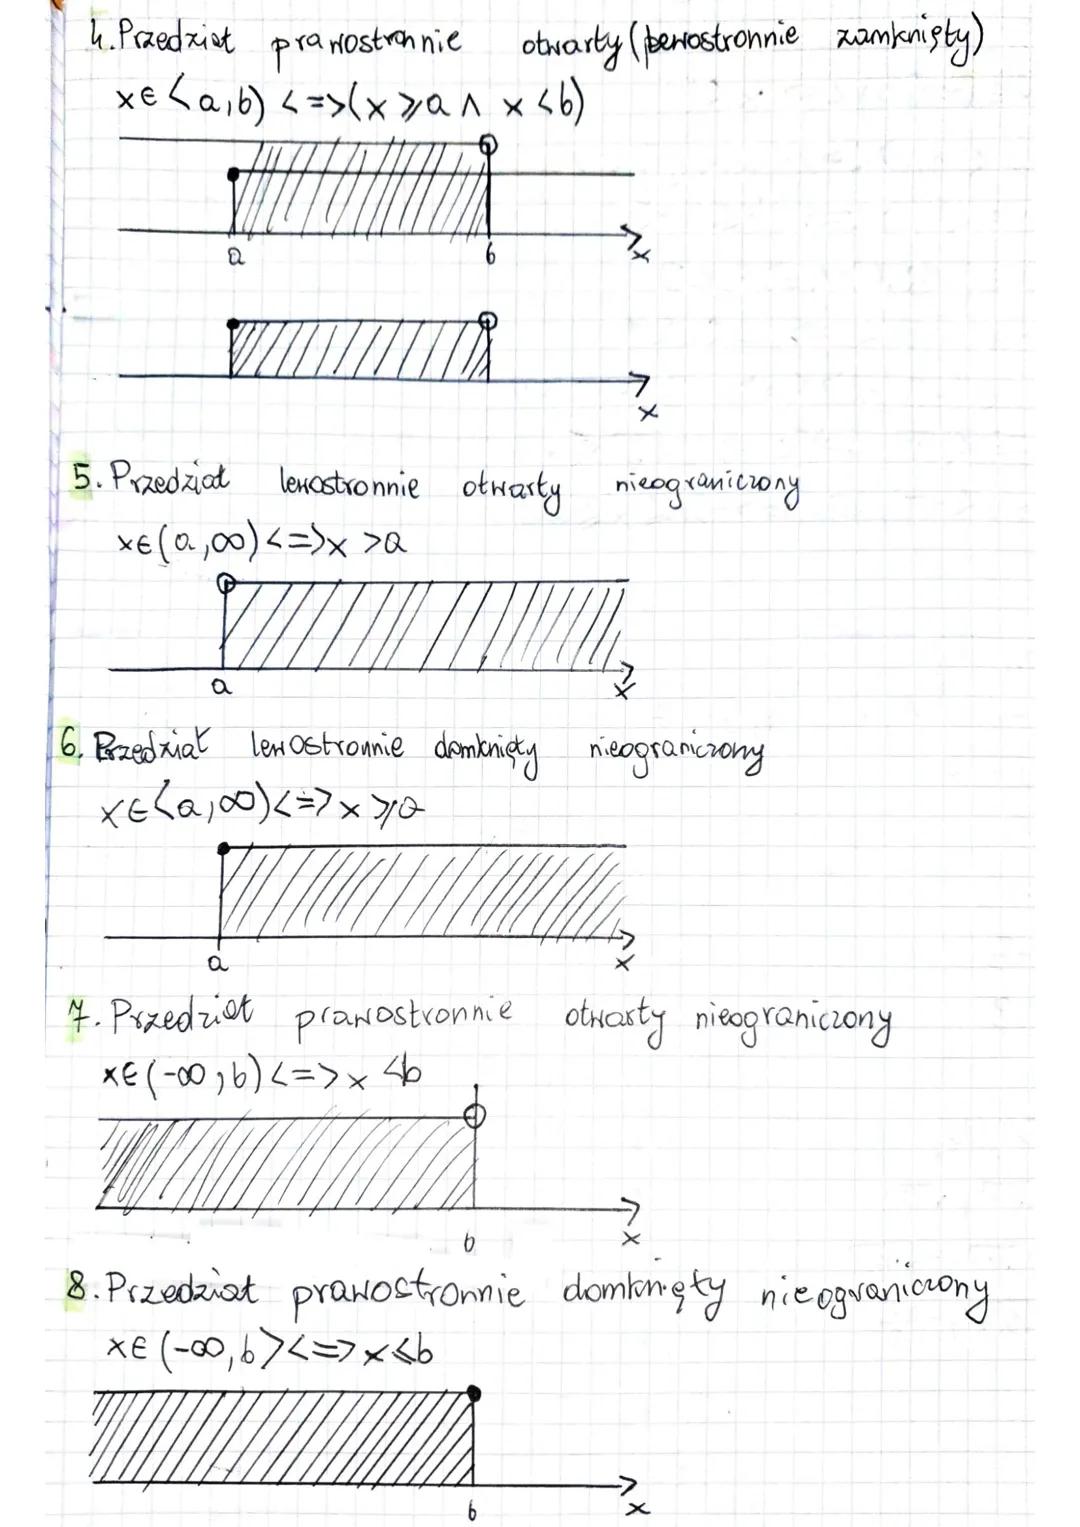 4. Przedział prawostronnie otwarty (lewostronnie zamknięty)
x∈<a,b) <=>(x ⩾a ∧ x <b)
a b x
x
5. Przedział lewostronnie otwarty nieograniczony
x∈(a,∞)<=>x >a
a x
6. Przedział lewostronnie domknięty nieograniczony
x∈<a,∞)<=>x ⩾a
a x
7. Przedział prawostronnie otwarty nieograniczony
x∈(-∞,b)<=>x <b
b x
8. Przedział prawostronnie domknięty nieograniczony
x∈(-∞,b><=>x⩽b
b x